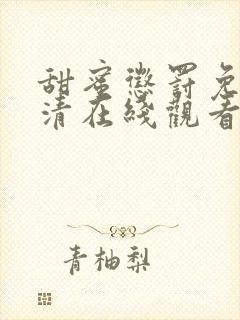 甜蜜懲罰免
清在綫觀看
青柚梨